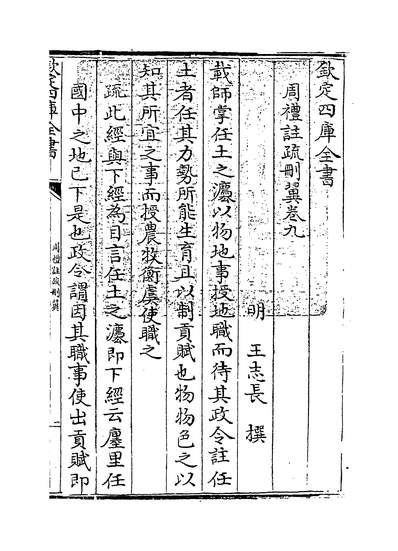 欽定四庫全書
周禮註疏刪翼卷九
明 王志長 撰
載師掌任土之灋以物地事授地職而待其政令註任
土者任其力勢所能生育且以制貢賦也物物色之以
知其所宜之事而授農牧衡虞使職之
疏此經與下經為目言任土之灋即下經云廛里任
國中之地已下是也政令謂因其職事使出貢賦即
欽定四庫全書
周禮註疏刪翼